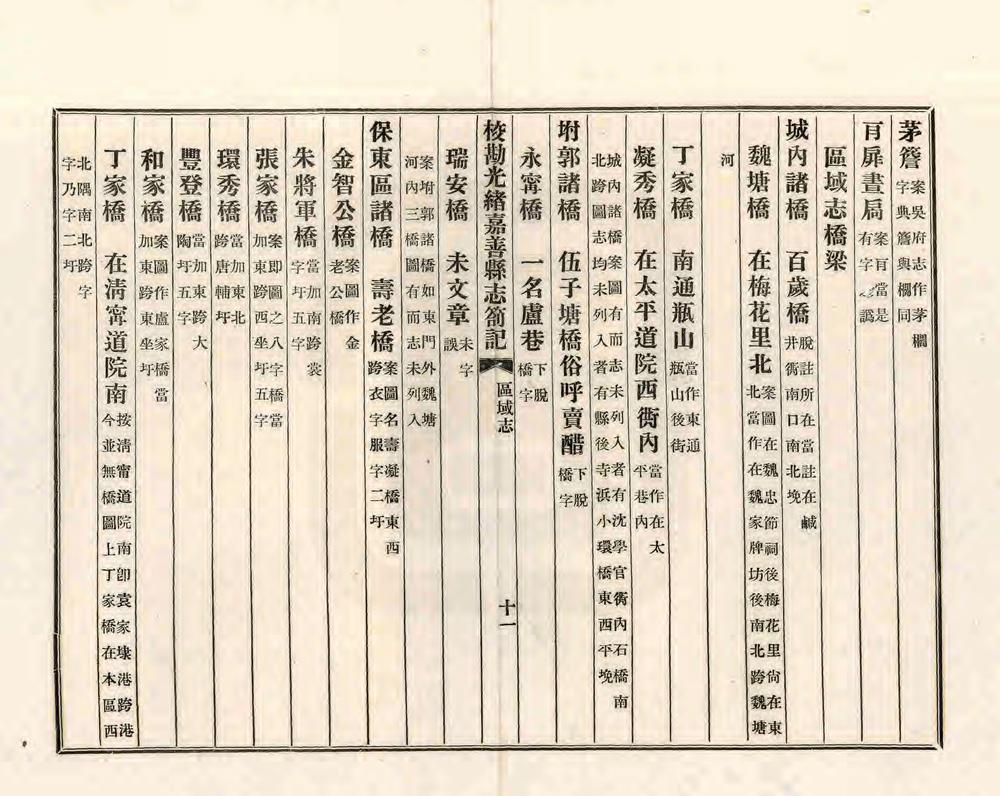 茅簷 案吳府志作茅欄字典簷與欄同
肓扉晝扃 案肓當是有字之譌
區域志橋梁
城內諸橋 百歲橋 脫註所在當註在鹹井衖南口南北堍
魏塘橋 在梅花里北 案圖在魏忠節祠後梅花里尙在東北當作在魏家牌坊後南北跨魏塘
河
丁家橋 南通瓶山 當作東通瓶山後街
凝秀橋 在太平道院西衖內 當作在太平巷內
城內諸橋案圖有而志未列入者有沈學官衖內石橋南北跨圖志均未列入者有縣後寺浜小環橋東西平堍
坿郭諸橋 伍子塘橋俗呼賣醋 下脫橋字
永甯橋 一名盧巷 下脫橋字
校勘光緒嘉善縣志劄記 區域志 十一
瑞安橋 未文章 未字誤
案坿郭諸橋如東門外魏塘河內三橋圖有而志未列入
保東區諸橋 壽老橋 案圖名壽凝橋東西跨衣字服字二圩
金智公橋 案圖作金老公橋
朱將軍橋 當加南跨裳字圩五字
張家橋 案即圖之八字橋當加東跨西坐圩五字
環秀橋 當加東北跨唐輔圩
豐登橋 當加東跨大陶圩五字
和家橋 案圖作盧家橋當加東跨東坐圩
丁家橋 在淸甯道院南 按淸甯道院南卽袁家埭港跨港今並無橋圖上丁家橋在本區西
北隅南北跨字字乃字二圩